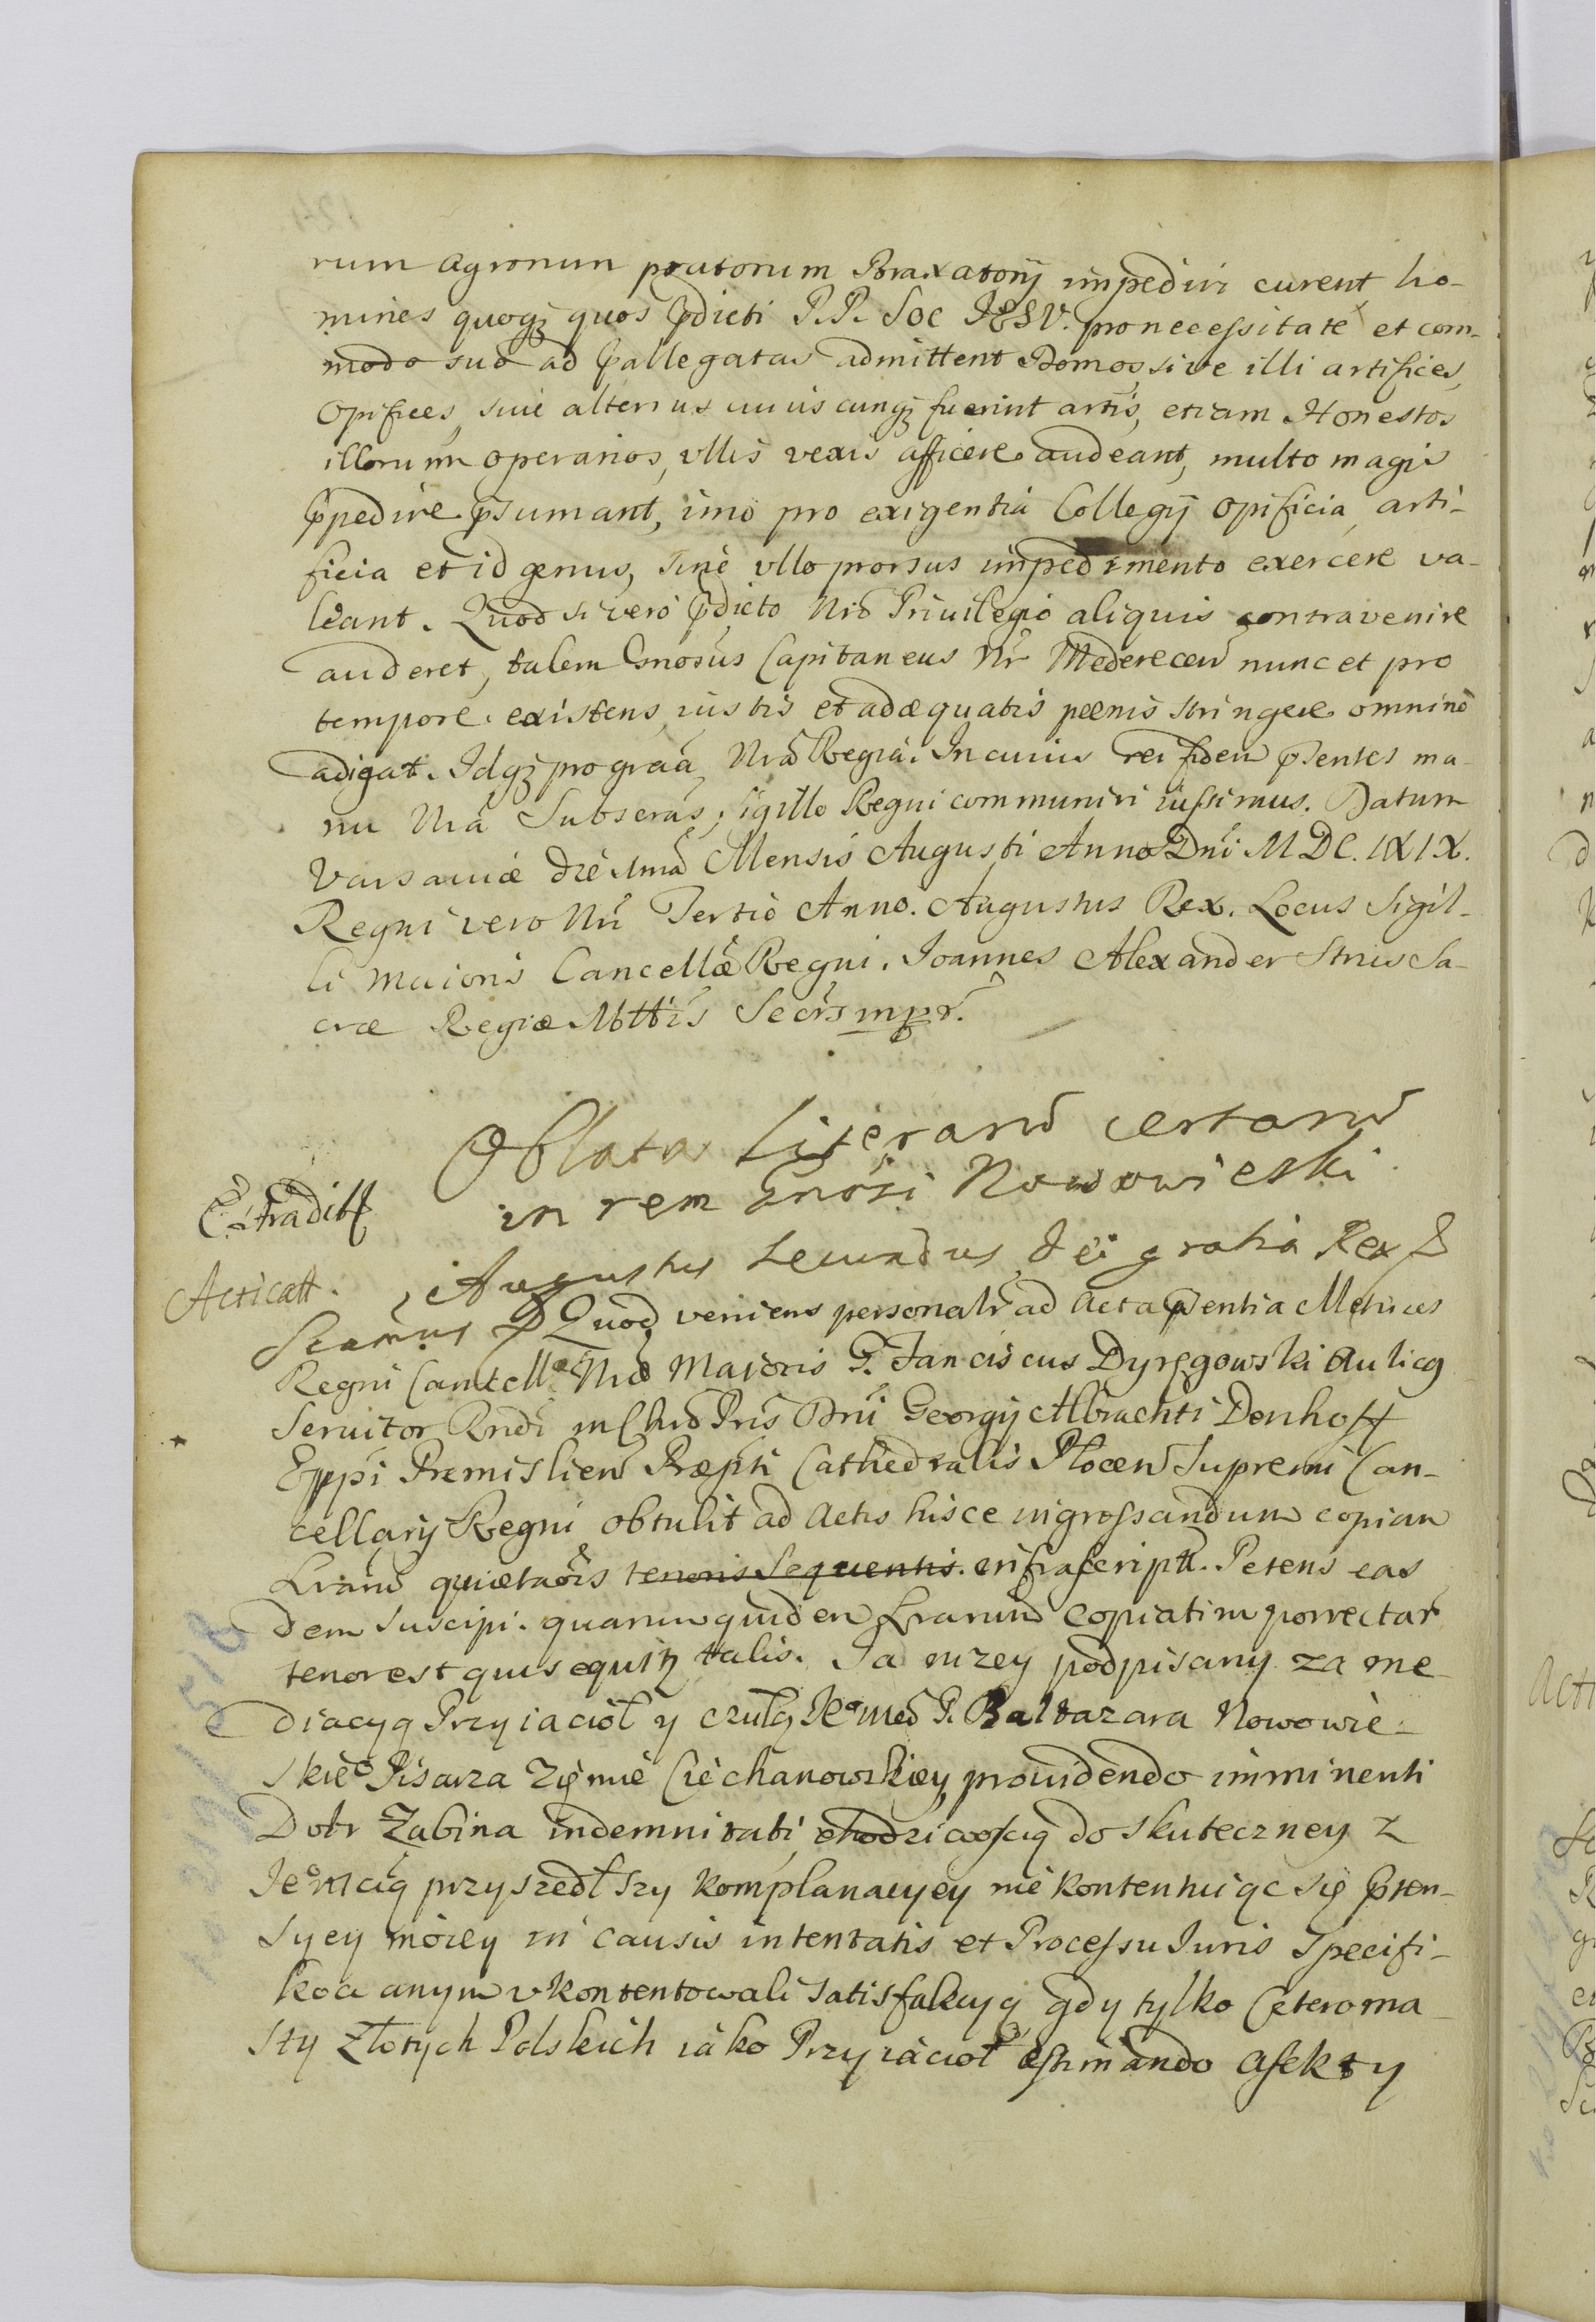 rum agrorum pratorum Braxatorij impediri curent ho-
mines quoqȝ quos p̃dicti P.P. Soc JESV. pro necessitate et com-
modo suo ad p̃allegatas admittent Domos, sive illi artifices,
Opifices, sive alterius cuius cunqȝ fuerint artis, etiam Honestos
illorum operarios, vllis vexis afficere audeant, multo magis
p̃pedire p̃sumant, imò pro exigentia Collegij opificia, arti-
ficia et id genus, sinè vllo prorsus impedimento exercere va-
leant. Quod si verò p̃dicto Nrõ Priuilegio aliquis contravenire
auderet, talem Gnosus Capitaneus Nr̃ Mederecen̄ nunc et pro
tempore existens, iustis et adæquatis pœnis stringere omninò
adigat. Idqȝ pro graã Nrã Regiâ. In cuius rei fidem p̃sentes ma-
nu Nrã Subscras, sigillo Regni communiri iussimus. Datum
Varsaviæ die 1mã Mensis Augusti Anno Dni MDC.IXIX.
Regni vero Nri Tertio Anno. Augustus Rex. Locus Sigil-
li maioris Cancellæ Regni. Joannes Alexander Strus Sa-
cræ Regiæ Mttis Secrs mpr.
Oblata literarū certarū
in rem Gnosi Nowowieski
Extradiť
Acticatť. Augustus Secundus Dei gratia Rex &
Scamus & Quod veniens personalr̃ ad Acta p̃sentia Metrices
Regni Cancellæ Nræ Majoris G. Fanciscus Dyręgowski Aulicq
Seruitor Rndi in Chrõ Pris Dni Georgij Albrachti Denhoff
Eppi Premislien̄ Præpti Cathedralis Plocen̄ Supremi Can-
cellarij Regni obtulit ad Actis hisce ingrossandum copiam
Lrarū quietaōis tenoris Sequentis. infrascriptt. Petens eas
dem suscipi. quarum quidem Lrarum copiatim porrectar̃
tenor est qui sequitȝ talis. Ja nizey podpisany za me
diacyą Przyiacioł y czułą Jeº Med P. Baltazara Nowowie-
skieº Pisarza Zięmie Ciechanowskiey, prouidendo imminenti
Dobr Zabina indemnitati, chodzi cwoscią do skuteczney z
Jeºmcią przyszedłszy komplanacyey nie kontentuiąc się p̃ten-
syey moiey in causis intentatis et Processu Juris Specifi-
kowanym vkontentowali satisfakcyą, gdy tylko Czteroma
sty Złotych Polskich iako Przyiacioł æstimando afekty